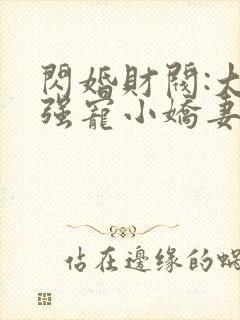 閃婚財閥:大
强寵小嬌妻
佔在邊缘的蝸